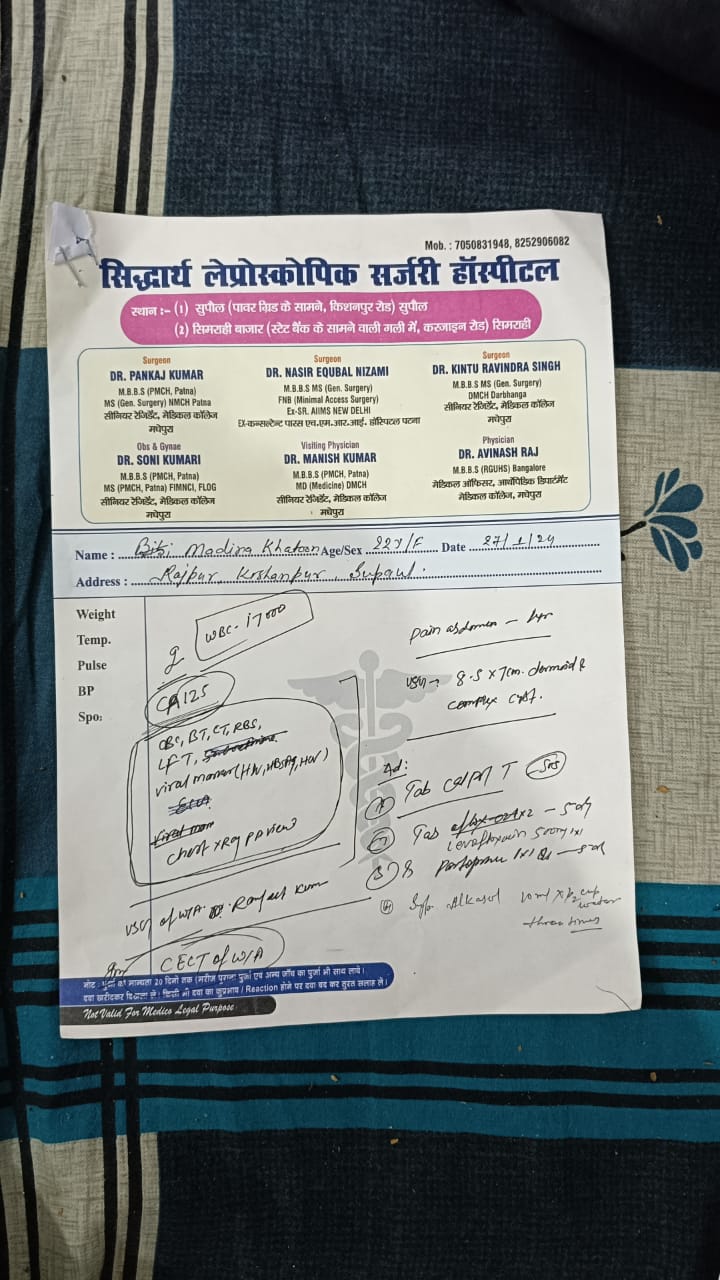 Mob. : 7050831948, 8252906082
सिद्धार्थ लेप्रोस्कोपिक सर्जरी हॉस्पीटल
स्थान :- (1) सुपौल (पावर ग्रिड के सामने, किशनपुर रोड) सुपौल
(2) सिमराही बाजार (स्टेट बैंक के सामने वाली गली में, करजाइन रोड) सिमराही
Surgeon
DR. PANKAJ KUMAR
M.B.B.S (PMCH, Patna)
MS (Gen. Surgery) NMCH Patna
सीनियर रेजिडेंट, मेडिकल कॉलेज
मधेपुरा
Surgeon
DR. NASIR EQUBAL NIZAMI
M.B.B.S MS (Gen. Surgery)
FNB (Minimal Access Surgery)
Ex-SR. AIIMS NEW DELHI
EX-कन्सल्टेन्ट पारस एच.एम.आर.आई. हॉस्पिटल पटना
Surgeon
DR. KINTU RAVINDRA SINGH
M.B.B.S MS (Gen. Surgery)
DMCH Darbhanga
सीनियर रेजिडेंट, मेडिकल कॉलेज
मधेपुरा
Obs & Gynae
DR. SONI KUMARI
M.B.B.S (PMCH, Patna)
MS (PMCH, Patna) FIMNCI, FLOG
सीनियर रेजिडेंट, मेडिकल कॉलेज
मधेपुरा
Visiting Physician
DR. MANISH KUMAR
M.B.B.S (PMCH, Patna)
MD (Medicine) DMCH
सीनियर रेजिडेंट, मेडिकल कॉलेज
मधेपुरा
Physician
DR. AVINASH RAJ
M.B.B.S (RGUHS) Bangalore
मेडिकल ऑफिसर, आर्थोपेडिक डिपार्टमेंट
मेडिकल कॉलेज, मधेपुरा
Name : Bibi Madina Khatoon Age/Sex 22Y/F Date 27/1/24
Address : Rajpur, Krshanpur, Supaul.
Weight
Temp.
Pulse
BP
Spo2
WBC - 17000
CA 125
CBC, BT, CT, RBS,
LFT,
viral marker (HIV, HBsAg, HCV)
chest xRay PA view
USG of W/A
CECT of W/A
Pain abdomen
USG → 8.5 x 7cm. dermoid
complex cyst.
Ad:
Tab T SOS
Tab
Levofloxacin 500mg
Syp Alkasol 10ml x 1/2 cup
water
three times
नोट : पुर्जा की मान्यता 20 दिनों तक (मरीज पुराना पुर्जा एवं अन्य जाँच का पुर्जा भी साथ लावे)
दवा खरीदकर दिखला लें। किसी भी दवा का कुप्रभाव / Reaction होने पर दवा बंद कर तुरंत सलाह लें।
Not Valid For Medico Legal Purpose